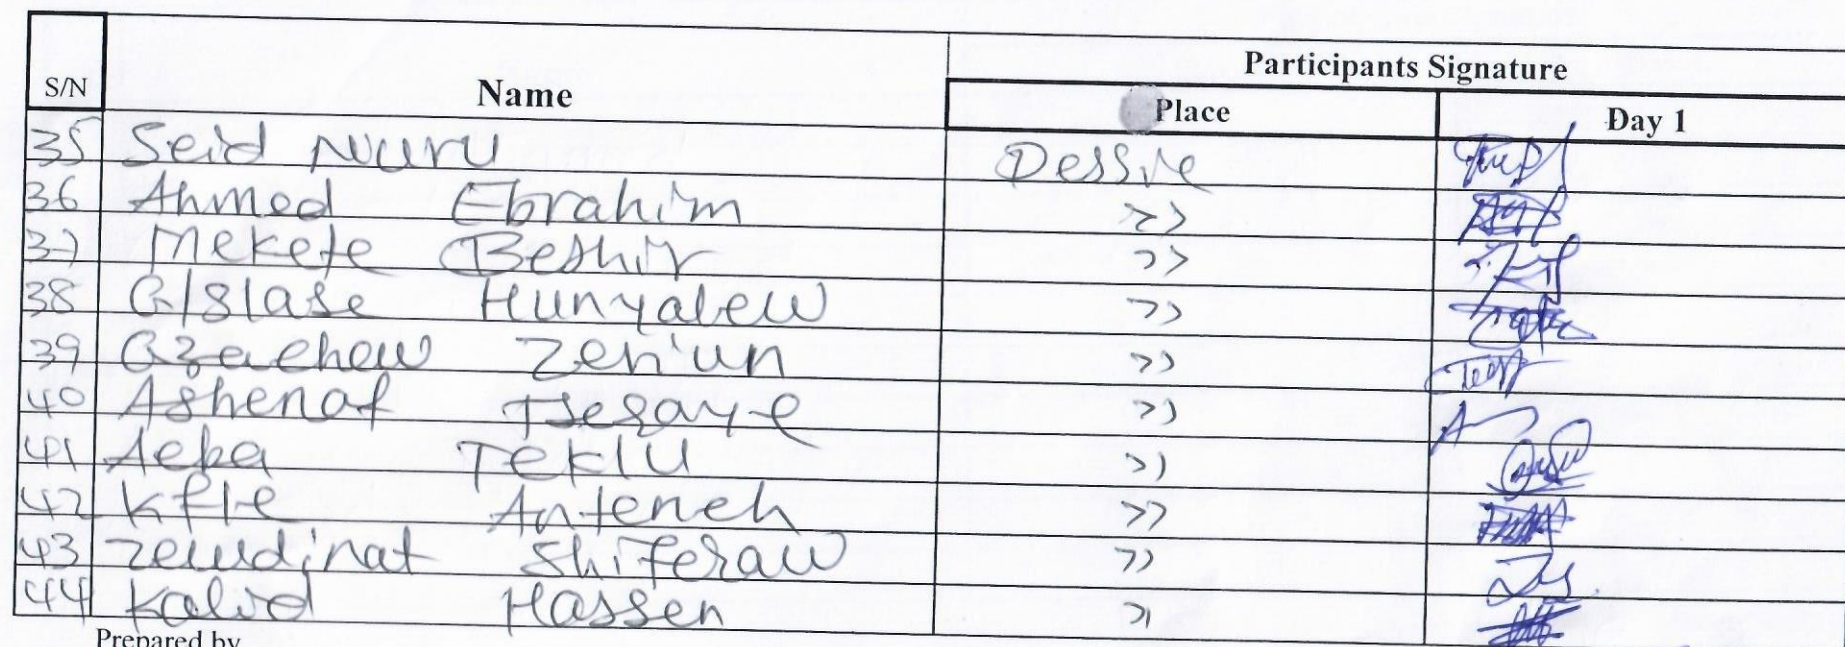 Participants Signature
S/N Name Place Day 1
35 Seid Nuru Dessie
36 Ahmed Ebrahim >>
37 Mekete Beshir >>
38 G/slase Hunyalew >>
39 Gzachew Zerihun >>
40 Ashenaf Tsegaye >>
41 Teklu >>
42 Kfle Anteneh >>
43 zewdinat Shiferaw >>
44 Kalid Hassen >>
Prepared by